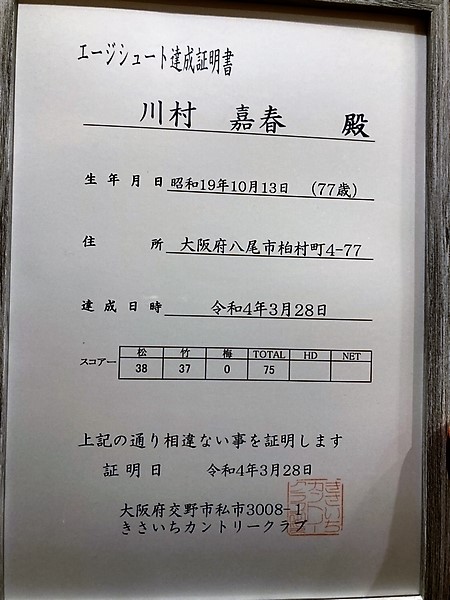 エージシュート達成証明書
川村 嘉春 殿
生年月日 昭和19年10月13日 (77歳)
住所 大阪府八尾市柏村町4-77
達成日時 令和4年3月28日
松 竹 梅 TOTAL HD NET
スコアー 38 37 0 75
上記の通り相違ない事を証明します
証明日 令和4年3月28日
大阪府交野市私市3008-1
きさいちカントリークラブ